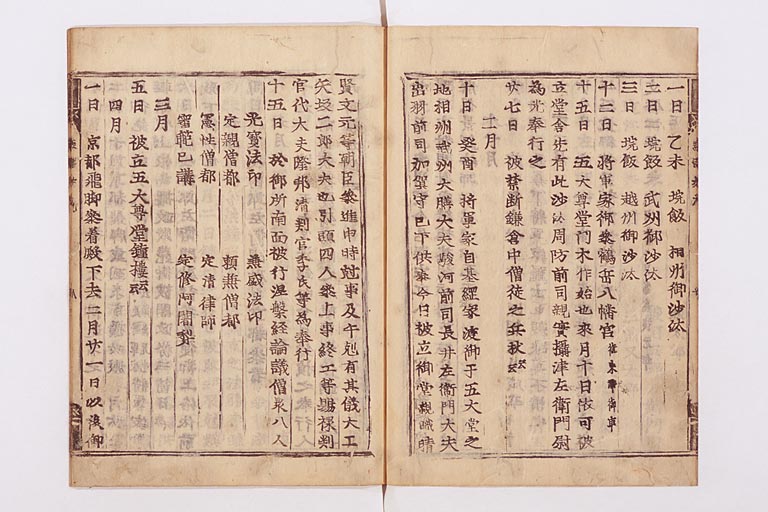 一日 乙未 埦飯 相州御沙汰
二日 埦飯 武州御沙汰
三日 埦飯 越州御沙汰
十二日 将軍家御參鶴岳八幡宮
十五日 五大尊堂門木作始也來月十日依可被
立堂舎 有此沙汰周防前司親實攝津左衛門尉
為 奉行之
廿七日 被禁断鎌倉中僧徒之兵杖云云
二月
十日 癸酉 将軍家自基綱家渡御于五大堂之
地相州武州大膳大夫駿河前司長井左衛門大夫
出羽前司加賀守已下供奉今日被立御堂親職晴
賢文元等朝臣參進申時尅事及午尅有其儀大工
矢坂二郎大夫也引頭四人參上事終工等賜禄判
官代大夫隆邦清判官季氏等為奉行
十五日 於御所南面被行涅槃經論議僧衆八人
光寳法印 兼盛法印
定親僧都 頼兼僧都
憲性僧都 定清律師
審範已講 定修阿闍梨
三月
五日 被立五大尊堂鐘樓云云
四月
一日 京都飛脚參着殿下去二月廿 日以後御